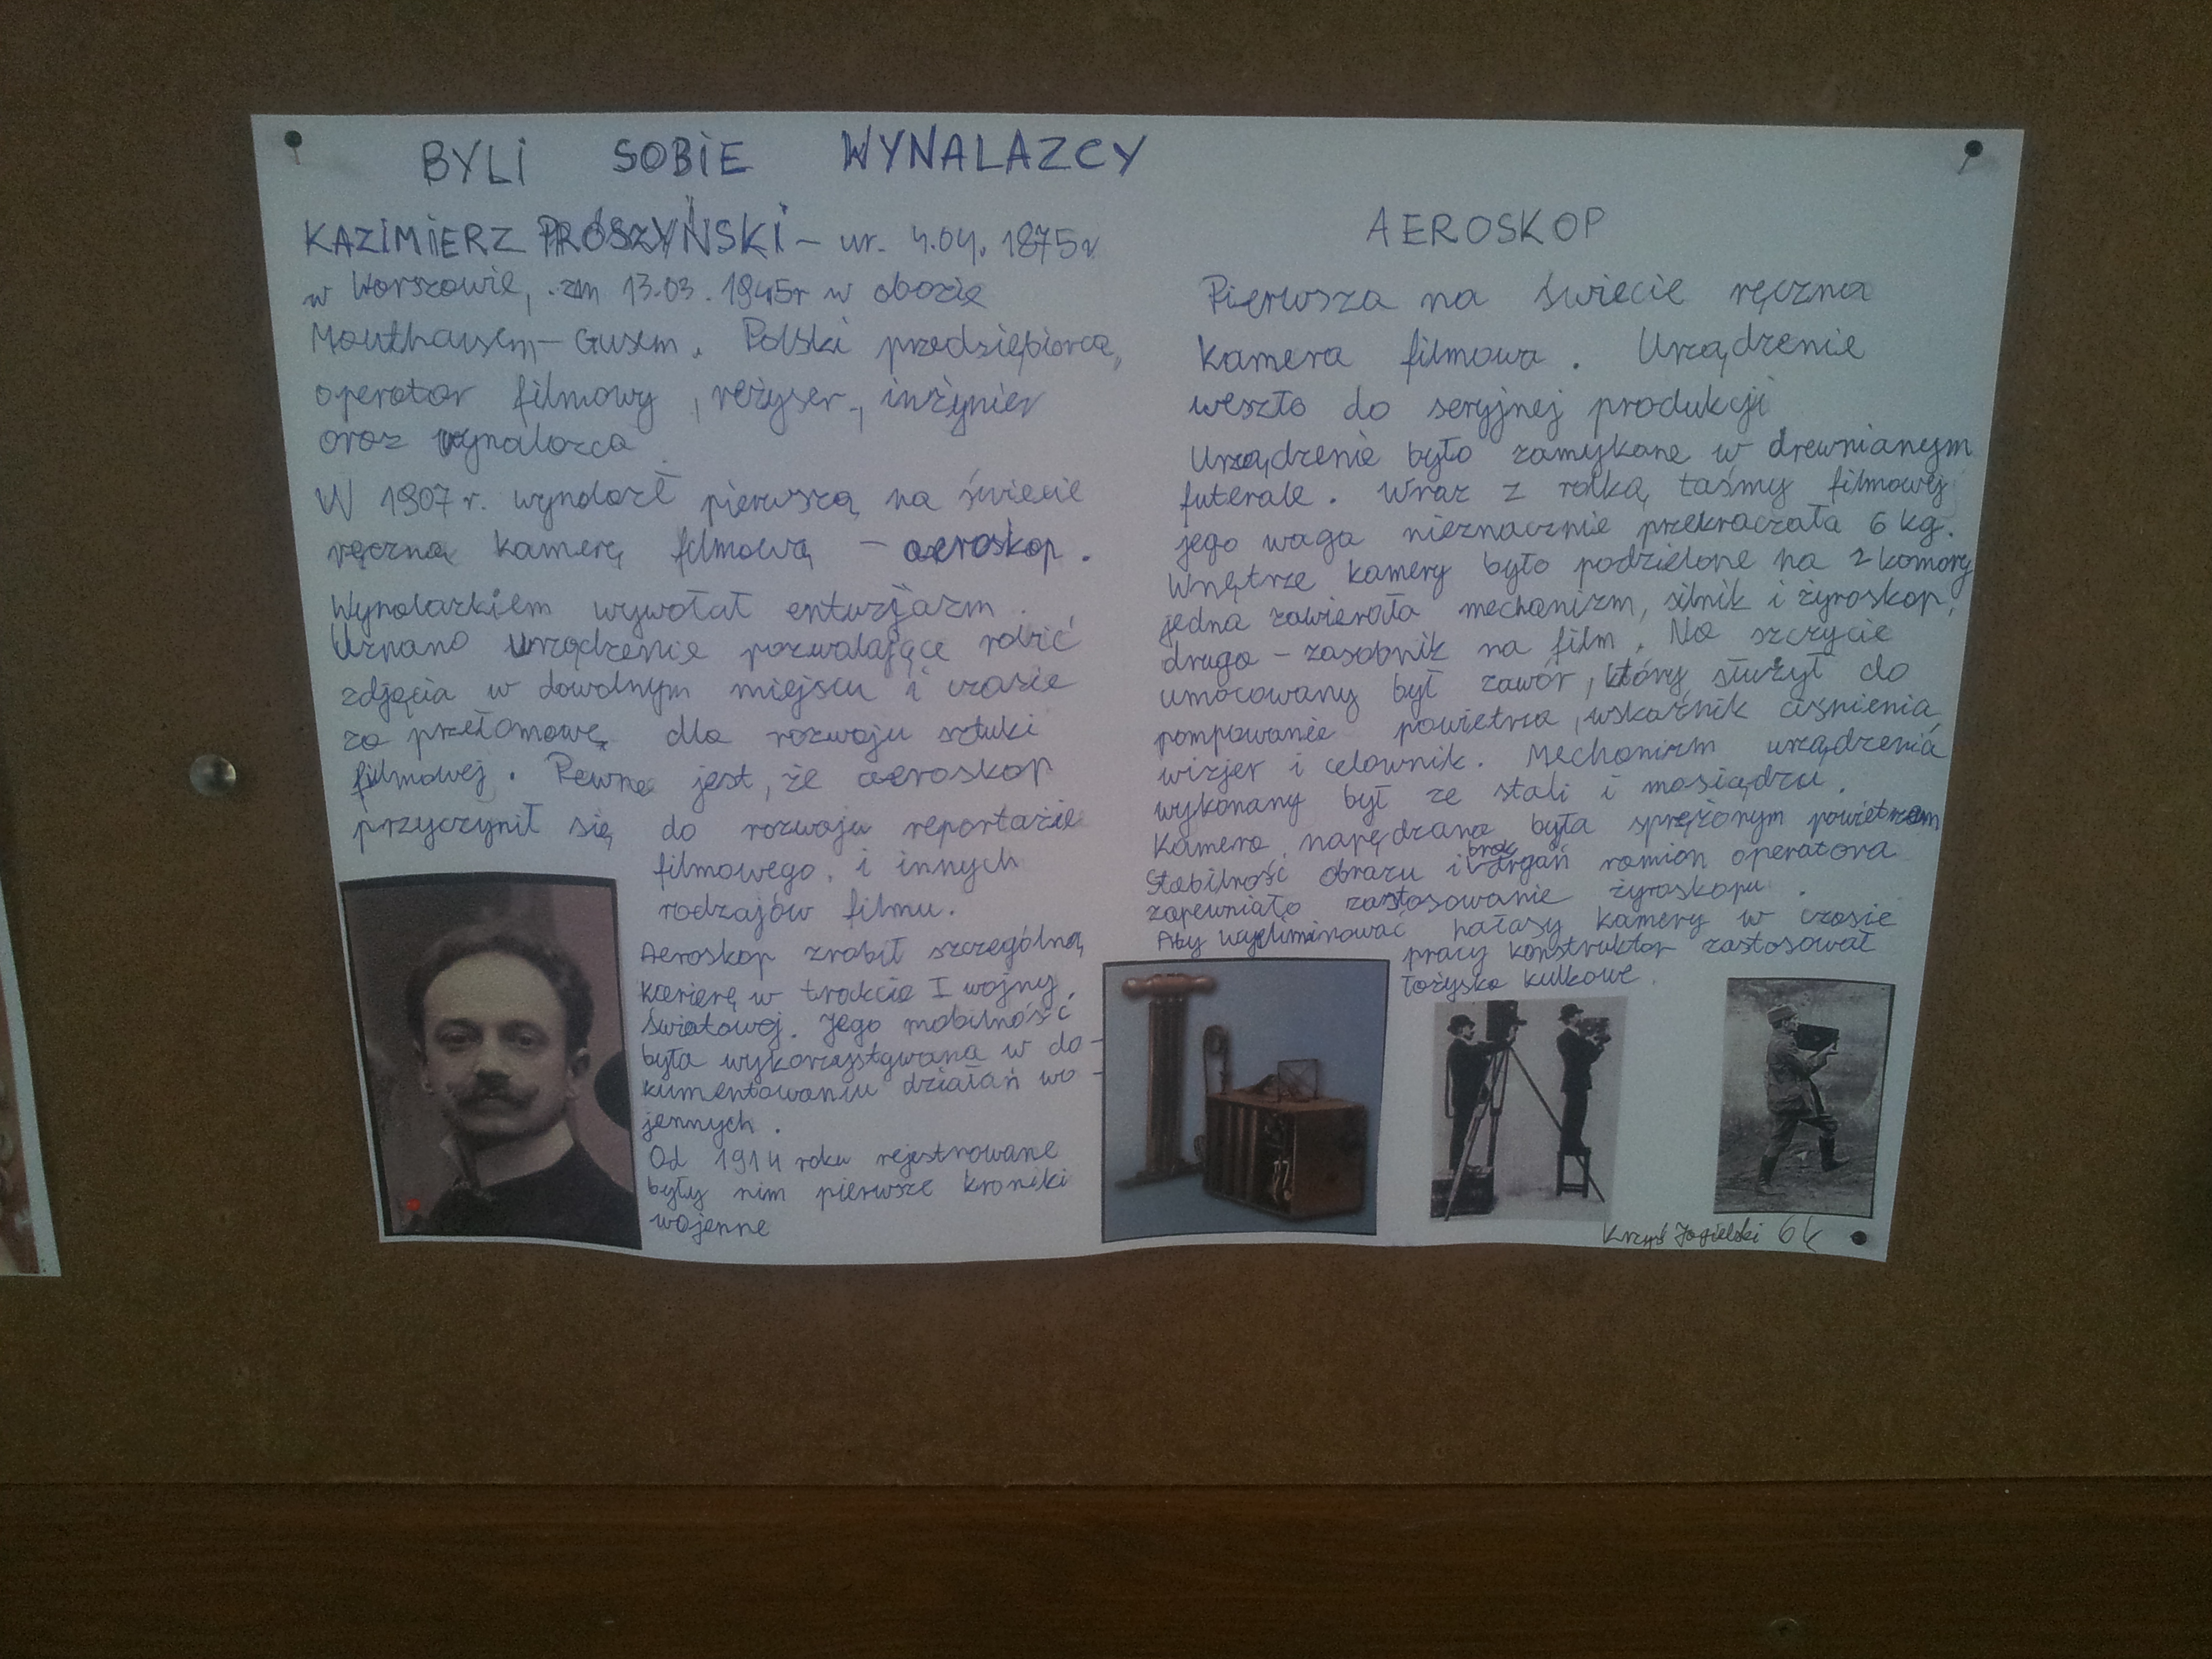 BYLI SOBIE WYNALAZCY
KAZIMIERZ PRÓSZYŃSKI - ur. 4.04. 1875r
w Warszawie, zm 13.03. 1945r w obozie
Mauthausem - Gusem. Polski przedsiębiorca,
operator filmowy, reżyser, inżynier
oraz wynalazca
W 1907 r. wynalazł pierwszą na świecie
ręczną kamerę filmową - aeroskop.
Wynalazkiem wywołał entuzjazm.
Uznano urządzenie pozwalające robić
zdjęcia w dowolnym miejscu i czasie
za przełomowe dla rozwoju sztuki
filmowej. Pewne jest, że aeroskop
przyczynił się do rozwoju reportażu
filmowego i innych
rodzajów filmu.
Aeroskop zrobił szczególną
karierę w trakcie I wojny
światowej. Jego mobilność
była wykorzystywana w do-
kumentowaniu działań wo-
jennych.
Od 1914 roku rejestrowane
były nim pierwsze kroniki
wojenne
AEROSKOP
Pierwsza na świecie ręczna
kamera filmowa. Urządzenie
weszło do seryjnej produkcji
Urządzenie było zamykane w drewnianym
futerale. Wraz z rolką taśmy filmowej
jego waga nieznacznie przekraczała 6 kg.
Wnętrze kamery było podzielone na 2 komory
jedna zawierała mechanizm, silnik i żyroskop,
druga - zasobnik na film. Na szczycie
umocowany był zawór, który służył do
pompowanie powietrza, wskaźnik ciśnienia,
wizjer i celownik. Mechanizm urządzenia
wykonany był ze stali i mosiądzu.
Kamera napędzana była sprężonym powietrzem
Stabilność obrazu i brak drgań ramion operatora
zapewniało zastosowanie żyroskopu.
Aby wyeliminować hałasy kamery w czasie
pracy konstruktor zastosował
łożyska kulkowe.
Krzyś Jagielski 6k